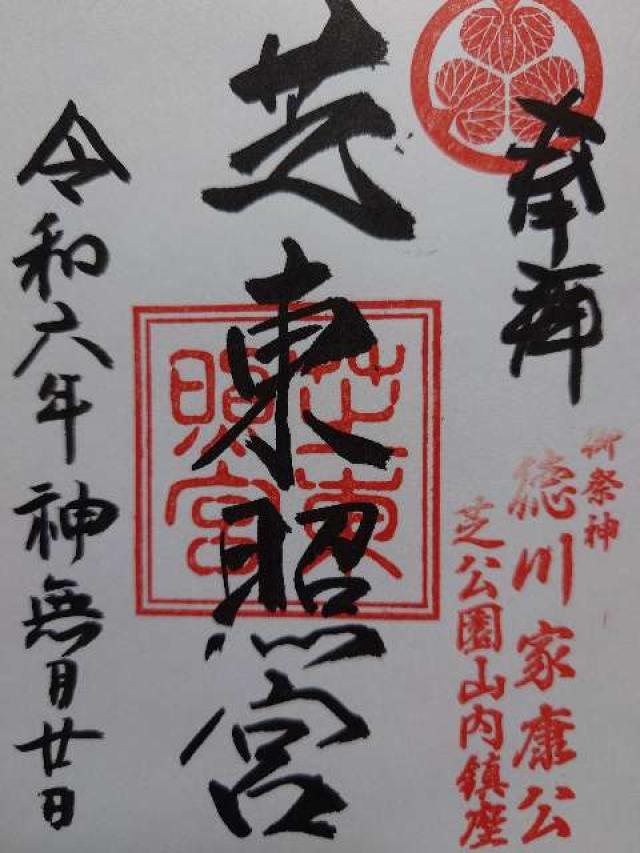 奉拝
御祭神
徳川家康公
芝公園山内鎮座
芝東照宮
芝東照宮
令和六年神無月廿日